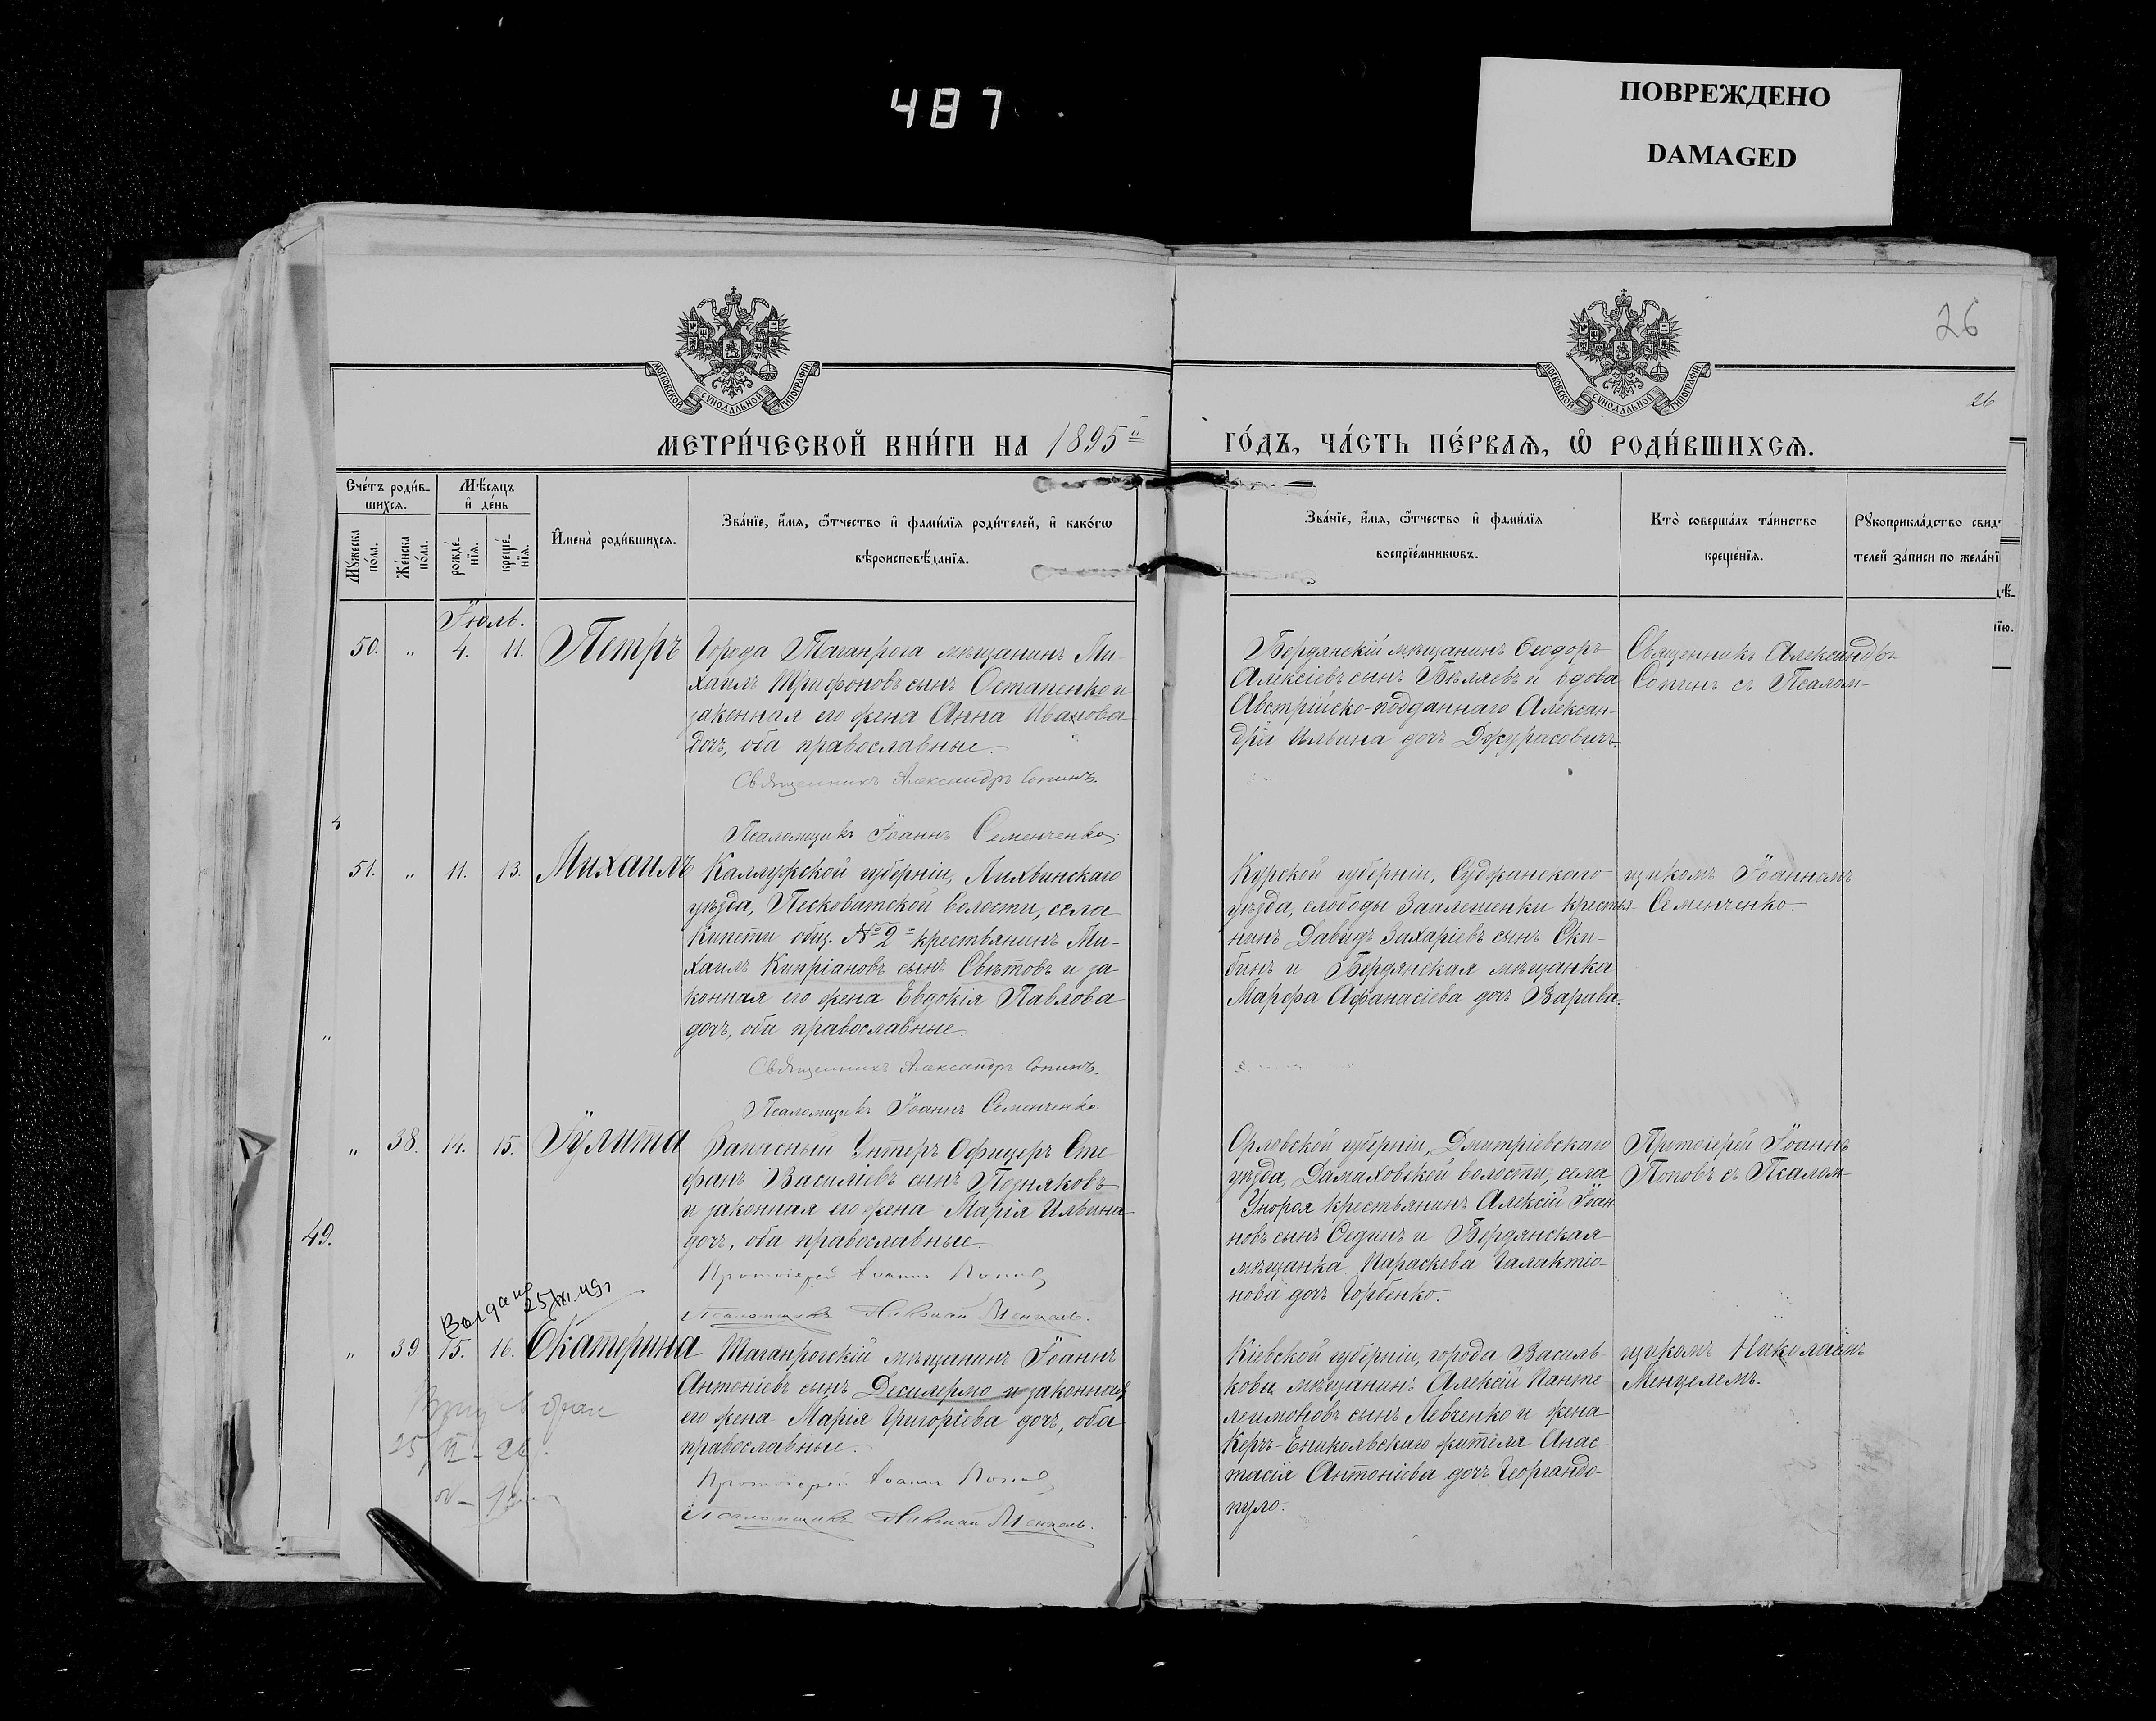 487
ПОВРЕЖДЕНО
DAMAGED
26
26
МОСКОВСКОЙ СУНОДАЛЬНОЙ ТИПОГРАФІИ
МОСКОВСКОЙ СУНОДАЛЬНОЙ ТИПОГРАФІИ
МЕТРИ́ЧЕСКОЙ КНИ́ГИ НА 1895й
ГО́ДЪ, ЧА́СТЬ ПЕ́РВАѦ, Ѡ҆ РОДИ́ВШИХСѦ.
Сче́тъ роди́в-
шихсѧ.
Мѣ́сѧцъ
и҆ де́нь
Мꙋ́жеска по́ла.
Же́нска по́ла.
рожде́-
нїѧ.
креще́-
нїѧ.
И҆мена̀ роди́вшихсѧ.
Зва́нїе, и҆́мѧ, ѻ҆́тчество и҆ фами́лїѧ роди́телей, и҆ како́гѡ
вѣроисповѣ́данїѧ.
Зва́нїе, и҆́мѧ, ѻ҆́тчество и҆ фами́лїѧ
воспрїе́мникѡвъ.
Кто̀ соверша́лъ та́инство
креще́нїѧ.
Рꙋкоприкла́дство свид
телей за́писи по жела́нї
Іюль.
50. „ 4. 11. Петръ
Города Таганрога мѣщанинъ Ми-
хаилъ Трифоновъ сынъ Остапенко и
законная его жена Анна Иванова
дочь, оба православные.
Священникъ Александръ Сопинъ.
Псаломщикъ Іоаннъ Семенченко.
Бердянскій мѣщанинъ Ѳеодоръ
Алексіевъ сынъ Бѣляевъ и вдова
Австрійско-подданнаго Алексан-
дра Ильина дочь Джурасовичъ.
Священникъ Александръ
Сопинъ съ Псалом-
51. „ 11. 13. Михаилъ
Калужской губерніи, Лихвинскаго
уѣзда, Песковатской волости, села
Кипети общ. № 2й крестьянинъ Ми-
хаилъ Кипріановъ сынъ Свѣтовъ и за-
конная его жена Евдокія Павлова
дочь, оба православные.
Священникъ Александръ Сопинъ.
Псаломщикъ Іоаннъ Семенченко.
Курской губерніи, Суджанскаго
уѣзда, слободы Заалешенки крестья-
нинъ Давидъ Захаріевъ сынъ Ски-
бинъ и Бердянская мѣщанка
Марфа Афанасіева дочь Варава.
щикомъ Іоанномъ
Семенченко.
„ 38. 14. 15. Іулита
Запасный Унтеръ Офицеръ Сте
фанъ Василіевъ сынъ Поздняковъ
и законная его жена Марія Ильина
дочь, оба православные.
Протоіерей Іоаннъ Поповъ
Псаломщикъ Николай Менцель.
Орловской губерніи, Дмитріевскаго
уѣзда, Домаховской волости, села
Упороя крестьянинъ Алексій Іоан-
новъ сынъ Сединъ и Бердянская
мѣщанка Параскева Галактіо-
нова дочь Горбенко.
Протоіерей Іоаннъ
Поповъ съ Псалом-
49.
Выдано
25/XI.49г
„ 39. 15. 16. Екатерина
Таганрогскій мѣщанинъ Іоаннъ
Антоніевъ сынъ Десилермо и законная
его жена Марія Григоріева дочь, оба
православные.
Протоіерей Іоаннъ Поповъ
Псаломщикъ Николай Менцель.
Кіевской губерніи, города Василь-
кова мѣщанинъ Алексій Панте-
леимоновъ сынъ Левченко и жена
Керчь-Еникольскаго жителя Анас-
тасія Антоніева дочь Георгандо-
пуло.
щикомъ Николаемъ
Менцелемъ.